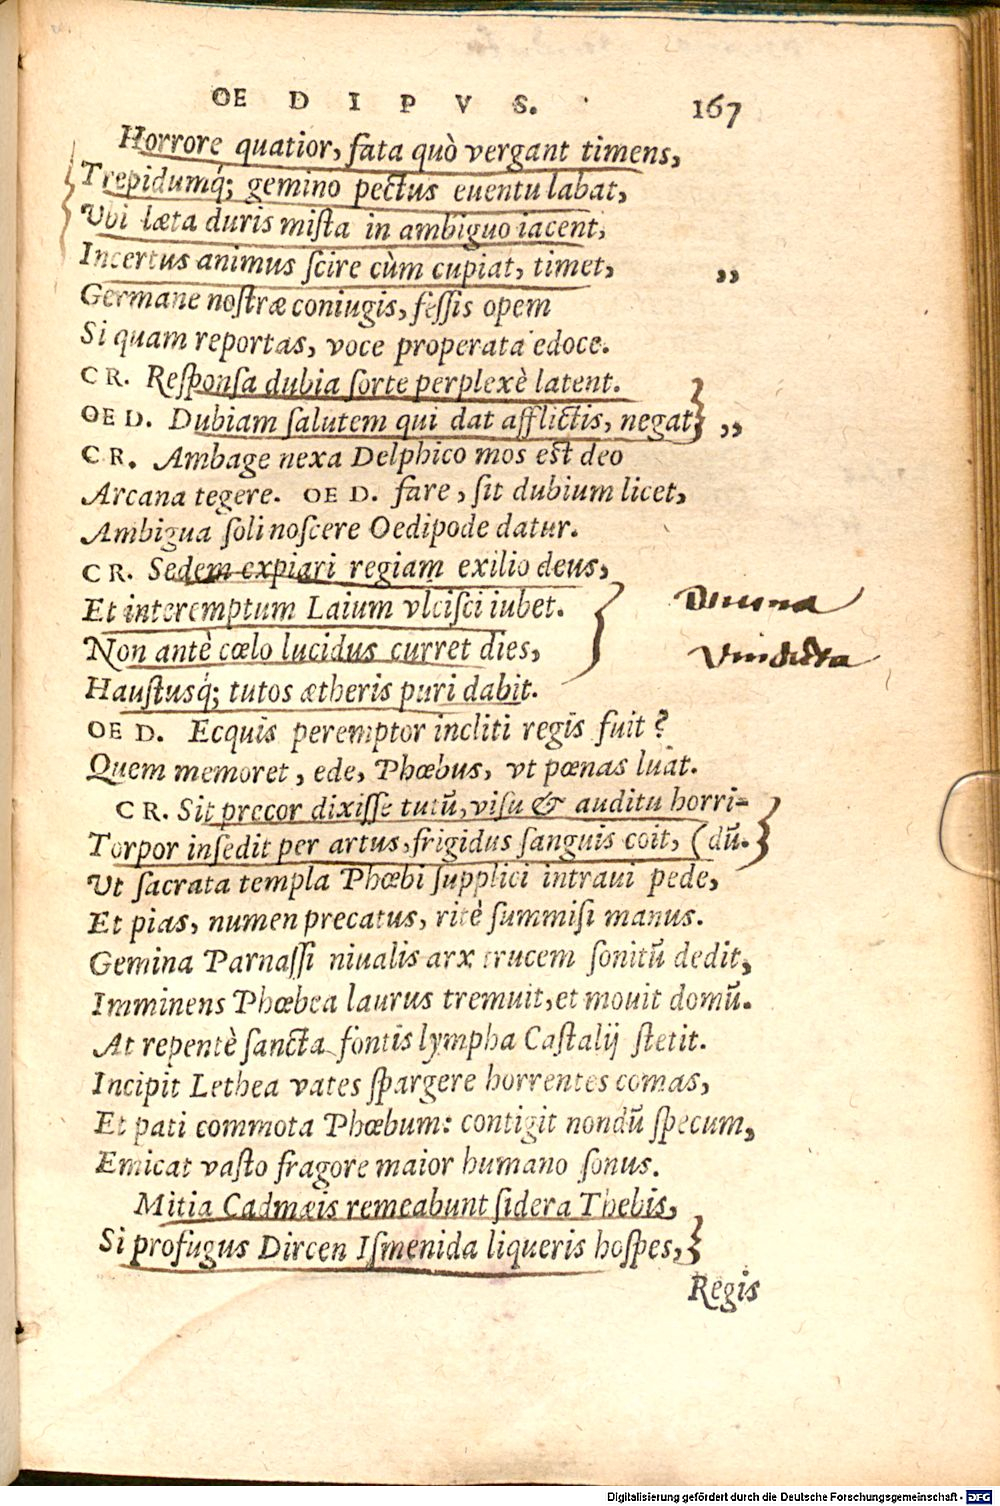 OE D I P V S. 167
Horrore quatior, fata quò vergant timens,
Trepidumq́; gemino pectus euentu labat,
Vbi læta duris mista in ambiguo iacent,
Incertus animus scire cùm cupiat, timet, ,,
Germane nostræ coniugis, fessis opem
Si quam reportas, voce properata edoce.
CR. Responsa dubia sorte perplexè latent.
OE D. Dubiam salutem qui dat afflictis, negat, ,,
CR. Ambage nexa Delphico mos est deo
Arcana tegere. OE D. fare, sit dubium licet,
Ambigua soli noscere Oedipodæ datur.
CR. Sedem expiari regiam exilio deus,
Et interemptum Laium vlcisci iubet. Diuina
Non antè cœlo lucidus curret dies, Vindicta
Haustusq́; tutos ætheris puri dabit.
OE D. Ecquis peremptor incliti regis fuit?
Quem memoret, ede, Phœbus, vt pœnas luat.
CR. Sit precor dixisse tutū, visu & auditu horri-
Torpor insedit per artus, frigidus sanguis coit, (dū.
Vt sacrata templa Phœbi supplici intraui pede,
Et pias, numen precatus, ritè summisi manus.
Gemina Parnassi niualis arx trucem sonitū dedit,
Imminens Phœbea laurus tremuit, et mouit domū.
At repentè sancta fontis lympha Castalij stetit.
Incipit Lethea vates spargere horrentes comas,
Et pati commota Phœbum: contigit nondū specum,
Emicat vasto fragore maior humano sonus.
Mitia Cadmæis remeabunt sidera Thebis,
Si profugus Dircen Ismenida liqueris hospes,
Regis
Digitalisierung gefördert durch die Deutsche Forschungsgemeinschaft - DFG